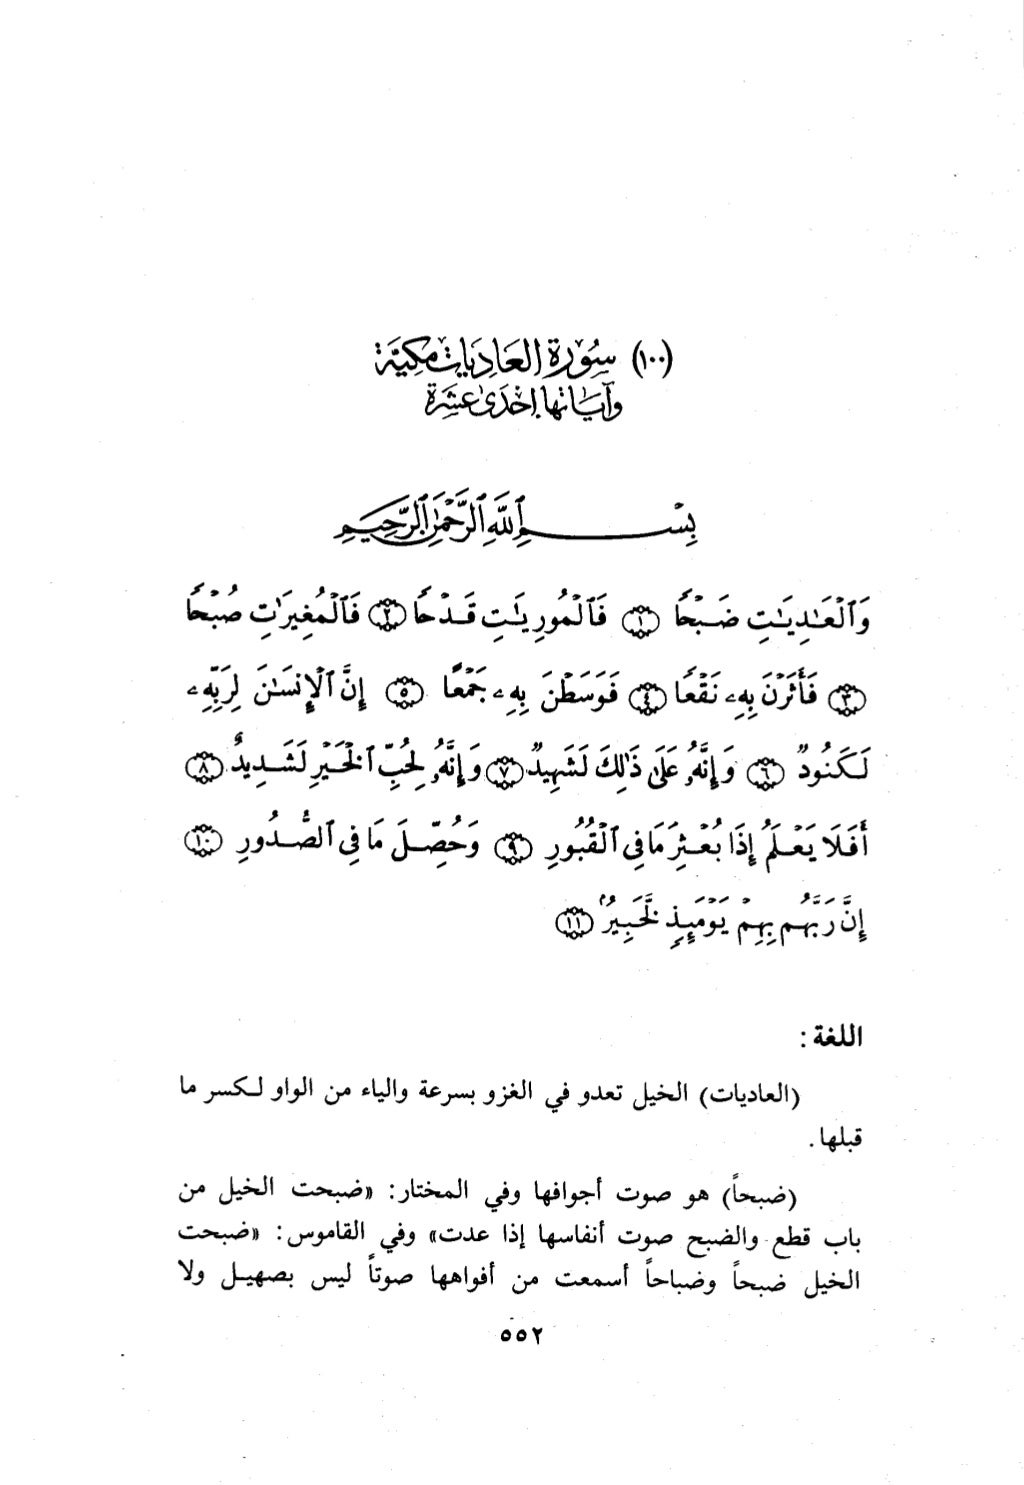 (١٠٠) سُورَةُ العَادِيَاتِ مَكِيَّة
وَآيَاتُهَا إِحْدَىٰ عَشَرَة
بِسْمِ ٱللَّهِ ٱلرَّحْمَٰنِ ٱلرَّحِيمِ
وَٱلْعَـٰدِيَـٰتِ ضَبْحًا ١ فَٱلْمُورِيَـٰتِ قَدْحًا ٢ فَٱلْمُغِيرَٰتِ صُبْحًا
٣ فَأَثَرْنَ بِهِۦ نَقْعًا ٤ فَوَسَطْنَ بِهِۦ جَمْعًا ٥ إِنَّ ٱلْإِنسَـٰنَ لِرَبِّهِۦ
لَكَنُودٌ ٦ وَإِنَّهُۥ عَلَىٰ ذَٰلِكَ لَشَهِيدٌ ٧ وَإِنَّهُۥ لِحُبِّ ٱلْخَيْرِ لَشَدِيدٌ ٨
أَفَلَا يَعْلَمُ إِذَا بُعْثِرَ مَا فِى ٱلْقُبُورِ ٩ وَحُصِّلَ مَا فِى ٱلصُّدُورِ ١٠
إِنَّ رَبَّهُم بِهِمْ يَوْمَئِذٍ لَّخَبِيرٌۢ ١١
اللغة :
(العاديات) الخيل تعدو في الغزو بسرعة والياء من الواو لكسر ما
قبلها .
(ضبحاً) هو صوت أجوافها وفي المختار: «ضبحت الخيل من
باب قطع والضبح صوت أنفاسها إذا عدت» وفي القاموس: «ضبحت
الخيل ضبحاً وضباحاً أسمعت من أفواهها صوتاً ليس بصهيل ولا
٥٥٢